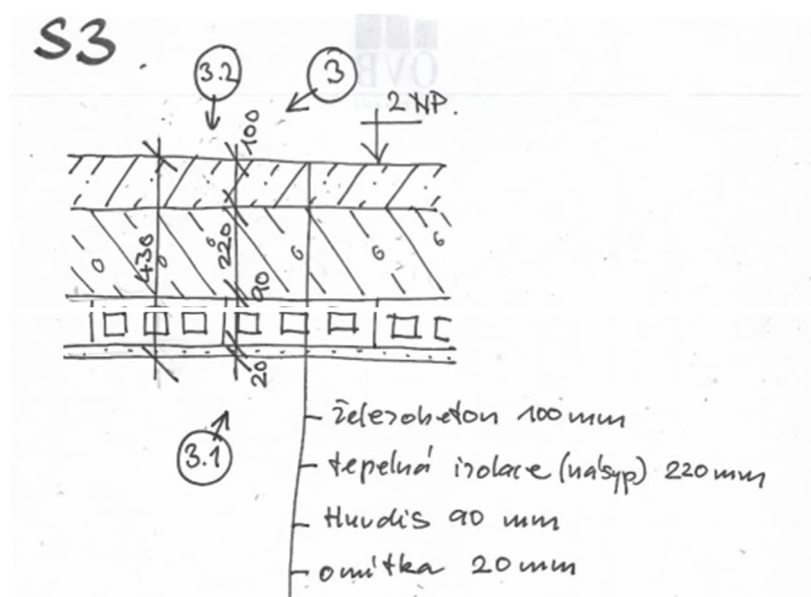 S3
3.2
3
2 NP.
100
430
220
90
20
3.1
železobeton 100 mm
tepelná izolace (násyp) 220 mm
Hurdis 90 mm
omítka 20 mm